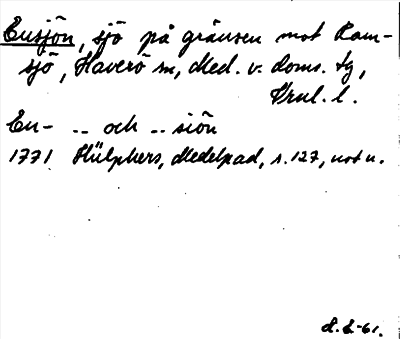 Ensjön, sjö på gränsen mot Ram-
sjö, Haverö sn, Med. v. doms. tg,
Vrnl. l.
En- .. och .. siön
1771 Hülphers, Medelpad, s. 127, not u.